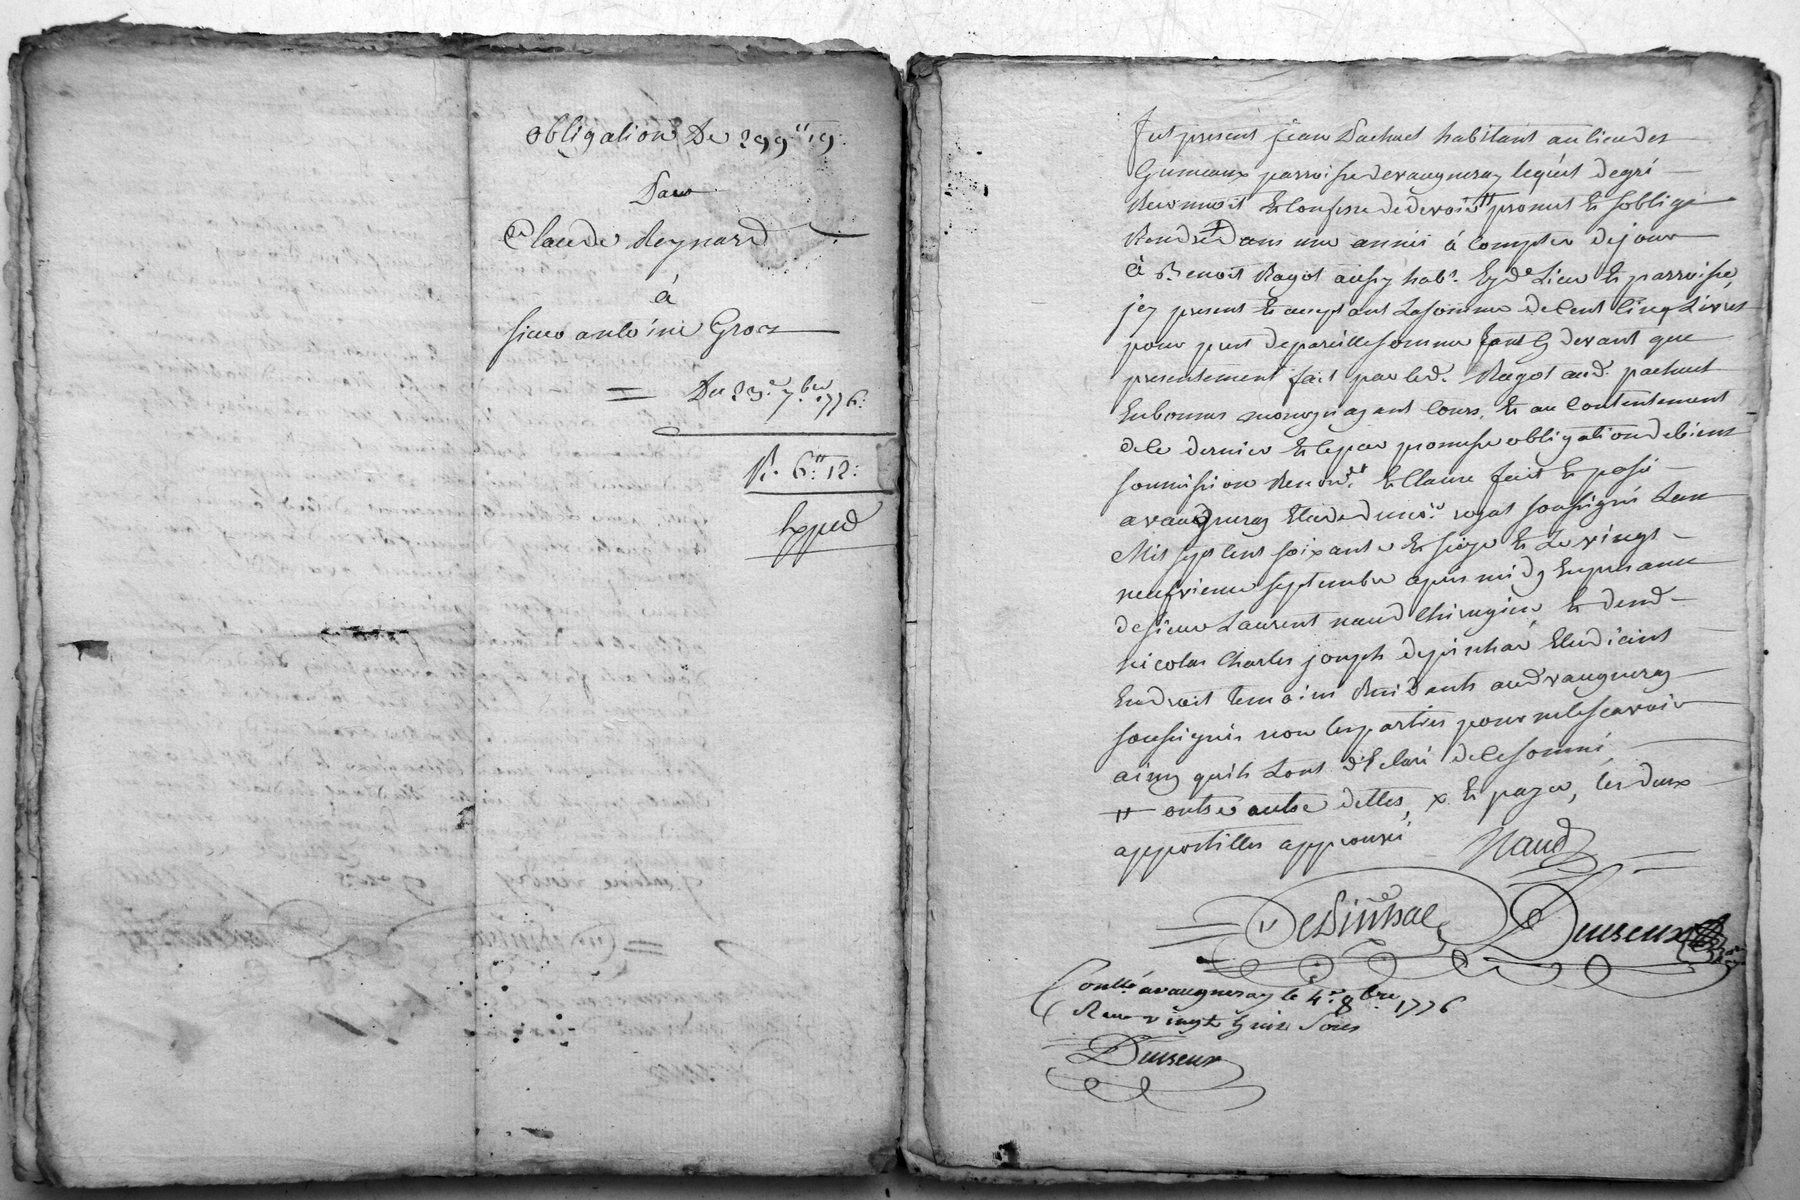 obligation De 299" 19.
Par
Claude Reynard
à
sieur antoine Gros
= Du 23e 7bre 1776.
R. 6" 12.
Exped
Fut present jean Pachaet habitant au lieu des
Gumeaux parroisse de vaugneray lequel de gré
Reconnoit Et Confesse de devoir # promet Et s'oblige
Rendre x dans une année à Compter de jour
à Benoit Ragot aussy habt. Eyde Lieu Et parroisse,
jcy present Et aceptant La somme de Cent Cinq Livres
pour pret de pareille somme tant Cy devant que
presentement fait par led. Ragot aud. pachaut
En bonnes monoyes ayant Cours, Et au Contentement
de Ce dernier Et Ce par promesse obligation de biens
soumission Renond. Et Clause fait Et passé
a vaugneray Etude du no.re royal soussigné L'an
Mil sept Cent soixante Et seize Et Le vingt
neufvieme septembre apres midy En presance
de sieur Laurent naud Chirugien, Et de md.
Nicolas Charles joseph depinhac Etudiant
En droit temoins Residants aud vaugneray
soussignés non les parties pour ne le scavoir
ainsy quils L'ont déClaré de Ce sommé,
# outre autre dettes, x Et payer, les deux
appostilles approuvé
Naud
Depinhac Duiseux
Conllé a vaugneray le 4e 8bre 1776
Reçu vingt Sous
Duiseux